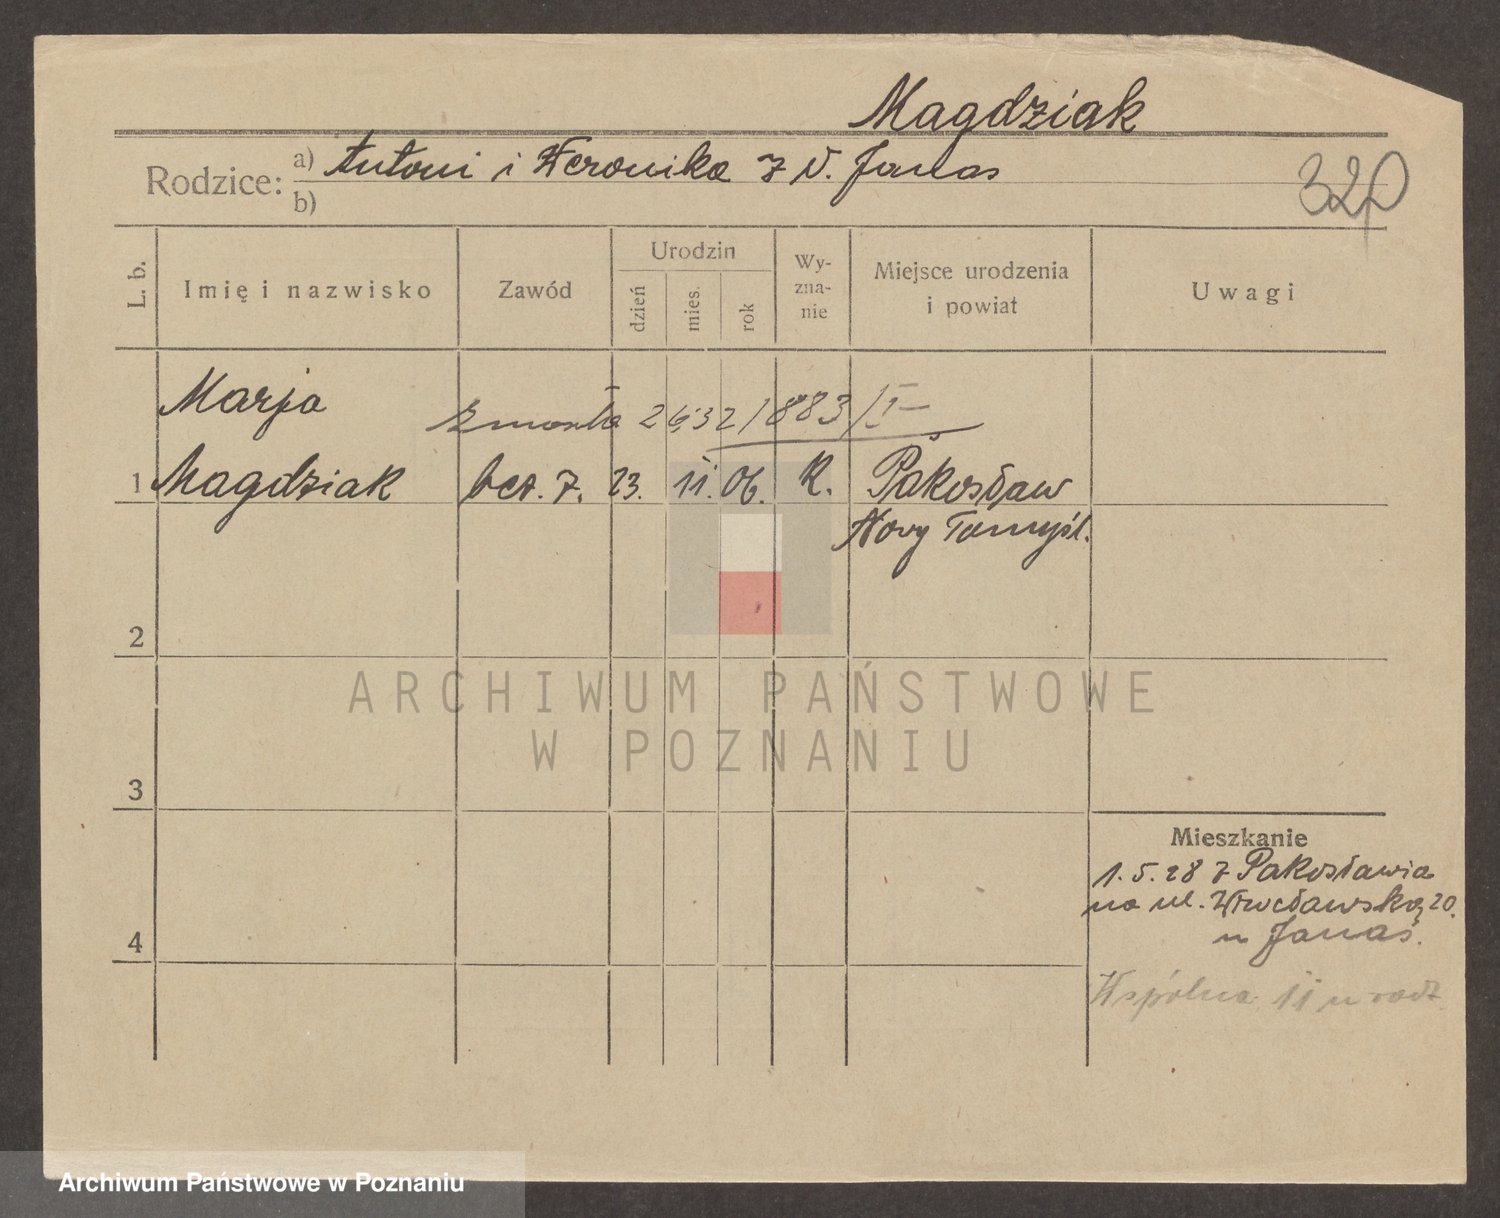 Magdziak
Rodzice: a) Antoni i Weronika z d. Janas
b)
320
L. b.
Imię i nazwisko
Zawód
Urodzin
dzień
mies.
rok
Wy-
zna-
nie
Miejsce urodzenia
i powiat
Uwagi
Marja
zmarła 26/3 32/883/I
1 Magdziak bez. z. 23. 11. 06. K. Pakosław
Nowy Tomyśl.
2
3
4
ARCHIWUM PAŃSTWOWE
W POZNANIU
Mieszkanie
1.5.28 z Pakosławia
na ul. Wrocławską 20.
u Janas.
Wspólna 11 u rodz.
Archiwum Państwowe w Poznaniu